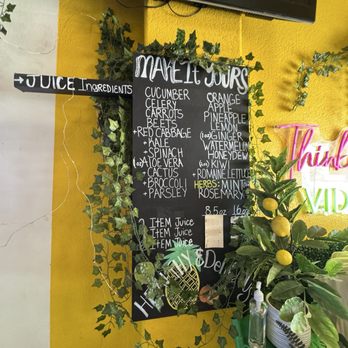 →JUICE INGREDIENTS
MAKE IT YOURS
CUCUMBER
CELERY
CARROTS
BEETS
+RED CABBAGE
+KALE
+SPINACH
ALOE VERA
+CACTUS
+BROCCOLI
+PARSLEY
ORANGE
APPLE
PINEAPPLE
LEMON
GINGER
WATERMEL
HONEYDEW
KIWI
+ROMAINE LETTUCE
HERBS: MINT
ROSEMARY
8.5oz 16oz
ITEM JUICE
ITEM JUICE
ITEM JUICE
HEALTHY & Deli
Think
VID